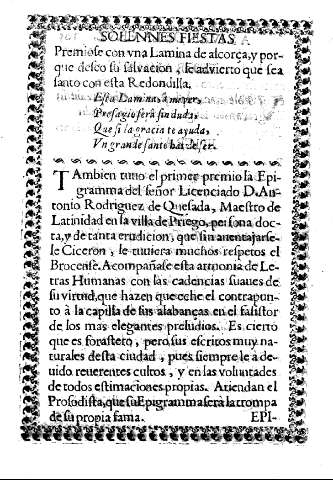 SOLENNES FIESTAS
Premiòse con vna Lamina de alcorça, y por-
que deseo su salvacion, le advierto que sea
santo con esta Redondilla.
Esta Lamina, à mi ver,
Presagio serà sin duda,
Que si la gracia te ayuda,
Vn grande santo has de ser.
TAmbien tuuo el primer premio la Epi-
gramma del señor Licenciado D. An-
tonio Rodriguez de Quesada, Maestro de
Latinidad en la villa de Priego, persona doc-
ta, y de tanta erudicion, que sin auentajarse-
le Ciceron, le tuuiera muchos respetos el
Brocense. Acompañase esta armonia de Le-
tras Humanas con las cadencias suaues de
su virtud, que hazen que eche el contrapun-
to à la capilla de sus alabanças en el fasistor
de los mas elegantes preludios. Es cierto
que es forastero, pero sus escritos muy na-
turales desta ciudad, pues siempre le à de-
uido reuerentes cultos, y en las voluntades
de todos estimaciones propias. Atiendan el
Prosodista, que su Epigramma serà la trompa
de su propia fama.
EPI-